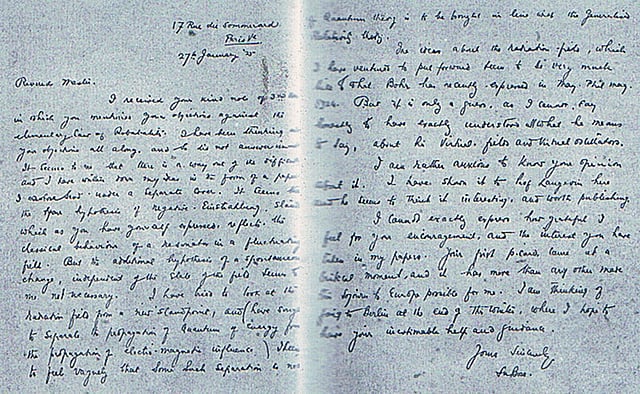 17 Rue du Sommerard
Paris Ve
27th January '25
Revered Master,
I received your kind note of
in which you mention your objections against the
elementary law of Probability. I have been thinking
your objections all along, and so did not answer
It seems to me that there is a way out of the
and I have written down my ideas in the form of a paper
I send under a separate cover. It seems
the hypothesis of negative Einstrahlung
which as you have yourself expressed, reflects the
classical behaviour of a resonator in a fluctuating
field. But the additional hypothesis of a spontaneous
change, independent of the state of the field seems to
me not necessary. I have tried to look at the
radiation field from a new standpoint, and have
to separate the propagation of Quantum of energy from
the propagation of electro-magnetic influence. I
to feel vaguely that some such separation is
Quantum theory is to be brought in line with the Generalised
Relativity theory.
The ideas about the radiation-field, which
I have ventured to put forward seem to be very much
what Bohr has recently expressed in May Phil. Mag.
But it is only a guess, as I cannot say
to have exactly understood all what he means
to say, about his virtual fields and virtual oscillators.
I am rather anxious to know your opinion
about it. I have shown it to Prof Langevin here
and he seems to think it interesting, and worth publishing.
I cannot exactly express how grateful I
feel for your encouragement, and the interest you have
taken in my papers. Your first p.card came at a
moment, and it has more than any other made
to Europe possible for me. I am thinking of
going to Berlin at the end of the winter, where I hope to
have your inestimable help and guidance.
Yours Sincerely
SnBose.